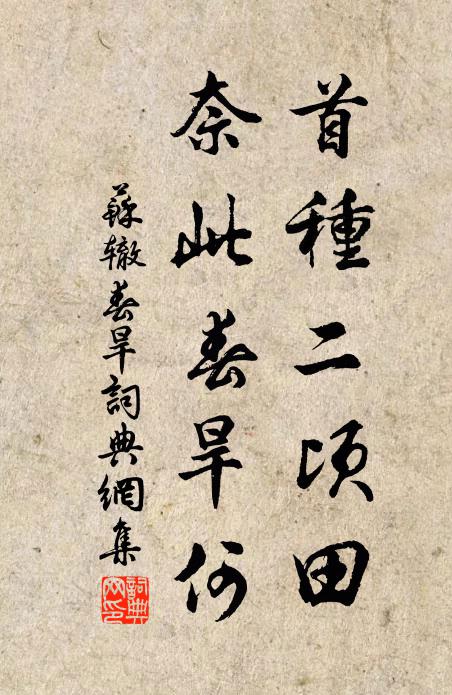 首種二頃田
奈此春旱何
蘇辙春旱詞典網集
詞典網印